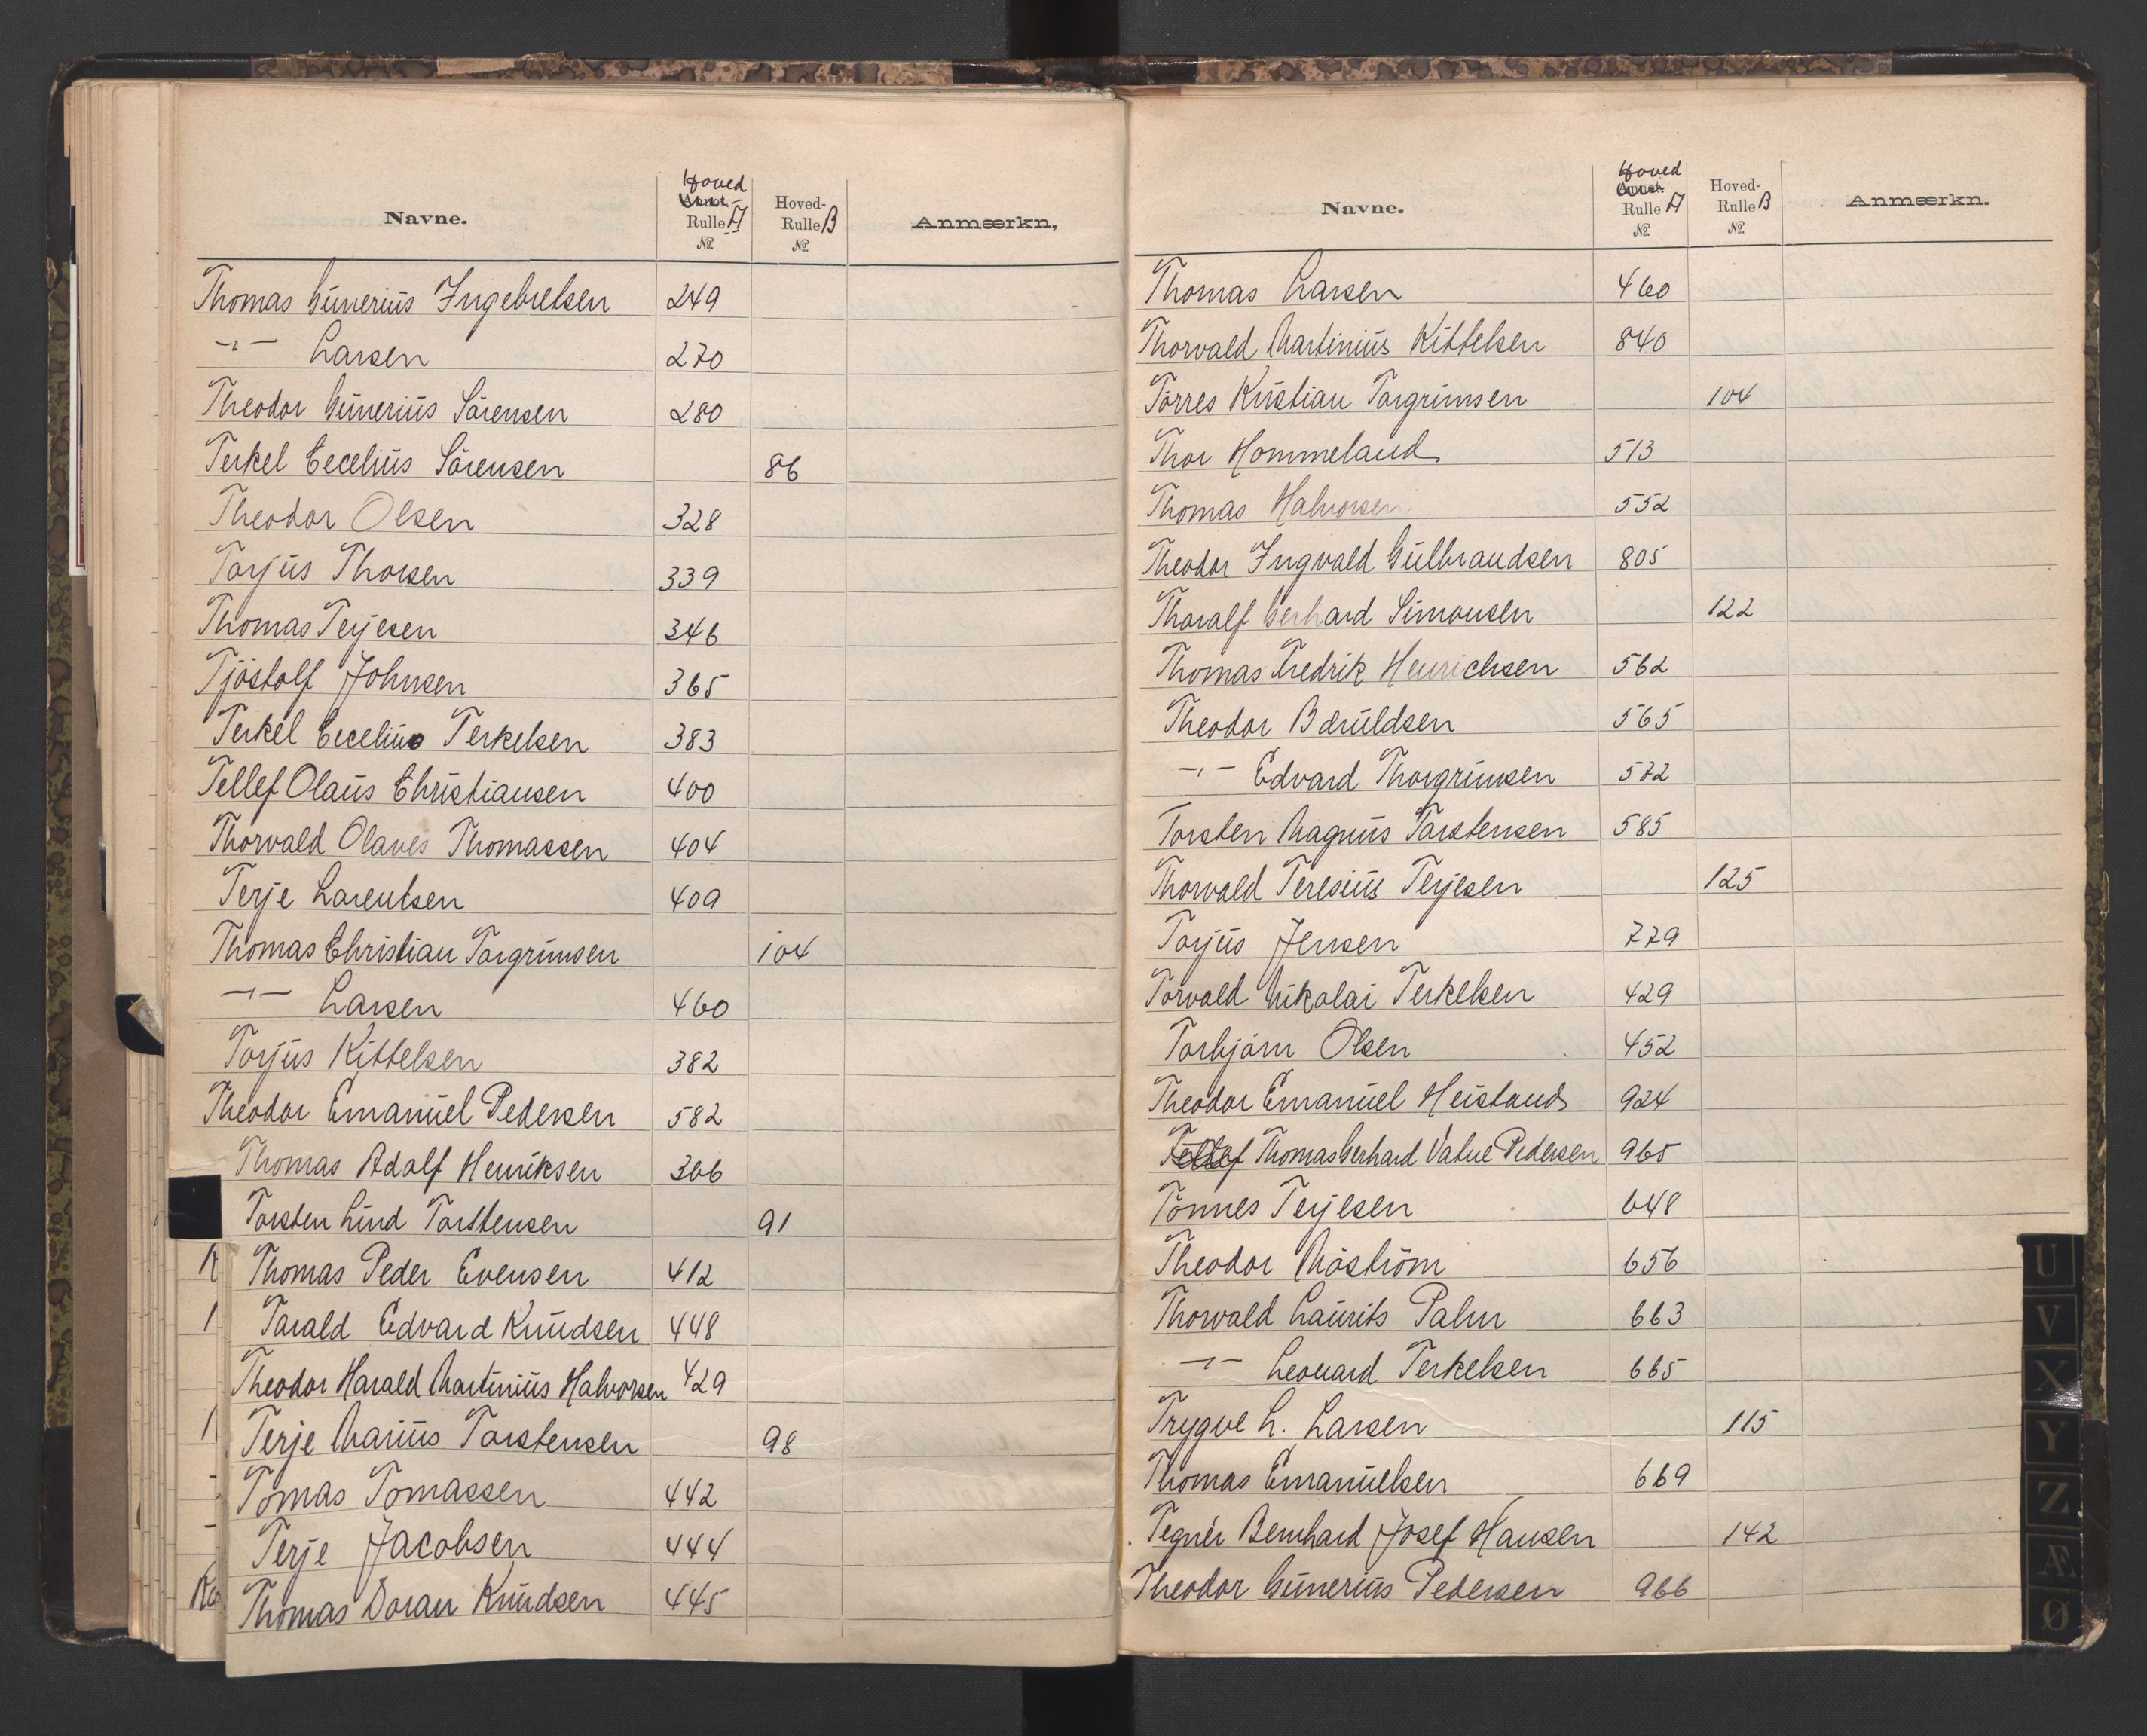 Navne. Hoved Rulle A No. Hoved-Rulle B No. Anmærkn.
Thomas Gunerius Ingebretsen 249
-"- Larsen 270
Theodor Gunerius Sörensen 280
Terkel Cecelius Sörensen 86
Theodor Olsen 328
Torjus Thorsen 339
Thomas Terjesen 346
Tjöstolf Johnsen 365
Terkel Cecelius Terkelsen 383
Tellef Olaus Christiansen 400
Thorvald Olaves Thomassen 404
Terje Larentsen 409
Thomas Christian Torgrimsen 104
-"- Larsen 460
Torjus Kittelsen 382
Theodor Emanuel Pedersen 582
Thomas Adolf Henriksen 306
Torsten Lind Torstensen 91
Thomas Peder Evensen 412
Tarald Edvard Knudsen 448
Theodor Harald Martinius Halvorsen 429
Terje Marius Torstensen 98
Tomas Tomassen 442
Terje Jacobsen 444
Thomas Doran Knudsen 445
Navne. Hoved Rulle A No. Hoved-Rulle B No. Anmærkn.
Thomas Larsen 460
Thorvald Martinius Kittelsen 840
Törres Kristian Torgrimsen 104
Thor Hommeland 513
Thomas Halvorsen 552
Theodor Ingvald Gulbrandsen 805
Thoralf Gerhard Simonsen 122
Thomas Fredrik Henrichsen 562
Theodor Bäruldsen 565
-"- Edvard Thorgrimsen 572
Torsten Magnus Torstensen 585
Thorvald Teresius Terjesen 125
Torjus Jensen 779
Torvald Nikolai Terkelsen 429
Torbjörn Olsen 452
Theodor Emanuel Heistand 924
Tellef Thomas Gerhard Value Pedersen 965
Tönnes Terjesen 648
Theodor Möström 656
Thorvald Laurits Palm 663
-"- Leonard Terkelsen 665
Trygve L. Larsen 115
Thomas Emanuelsen 669
Tegnér Bernhard Josef Hansen 142
Theodor Gunerius Pedersen 966
U
V
X
Y
Z
Æ
Ø